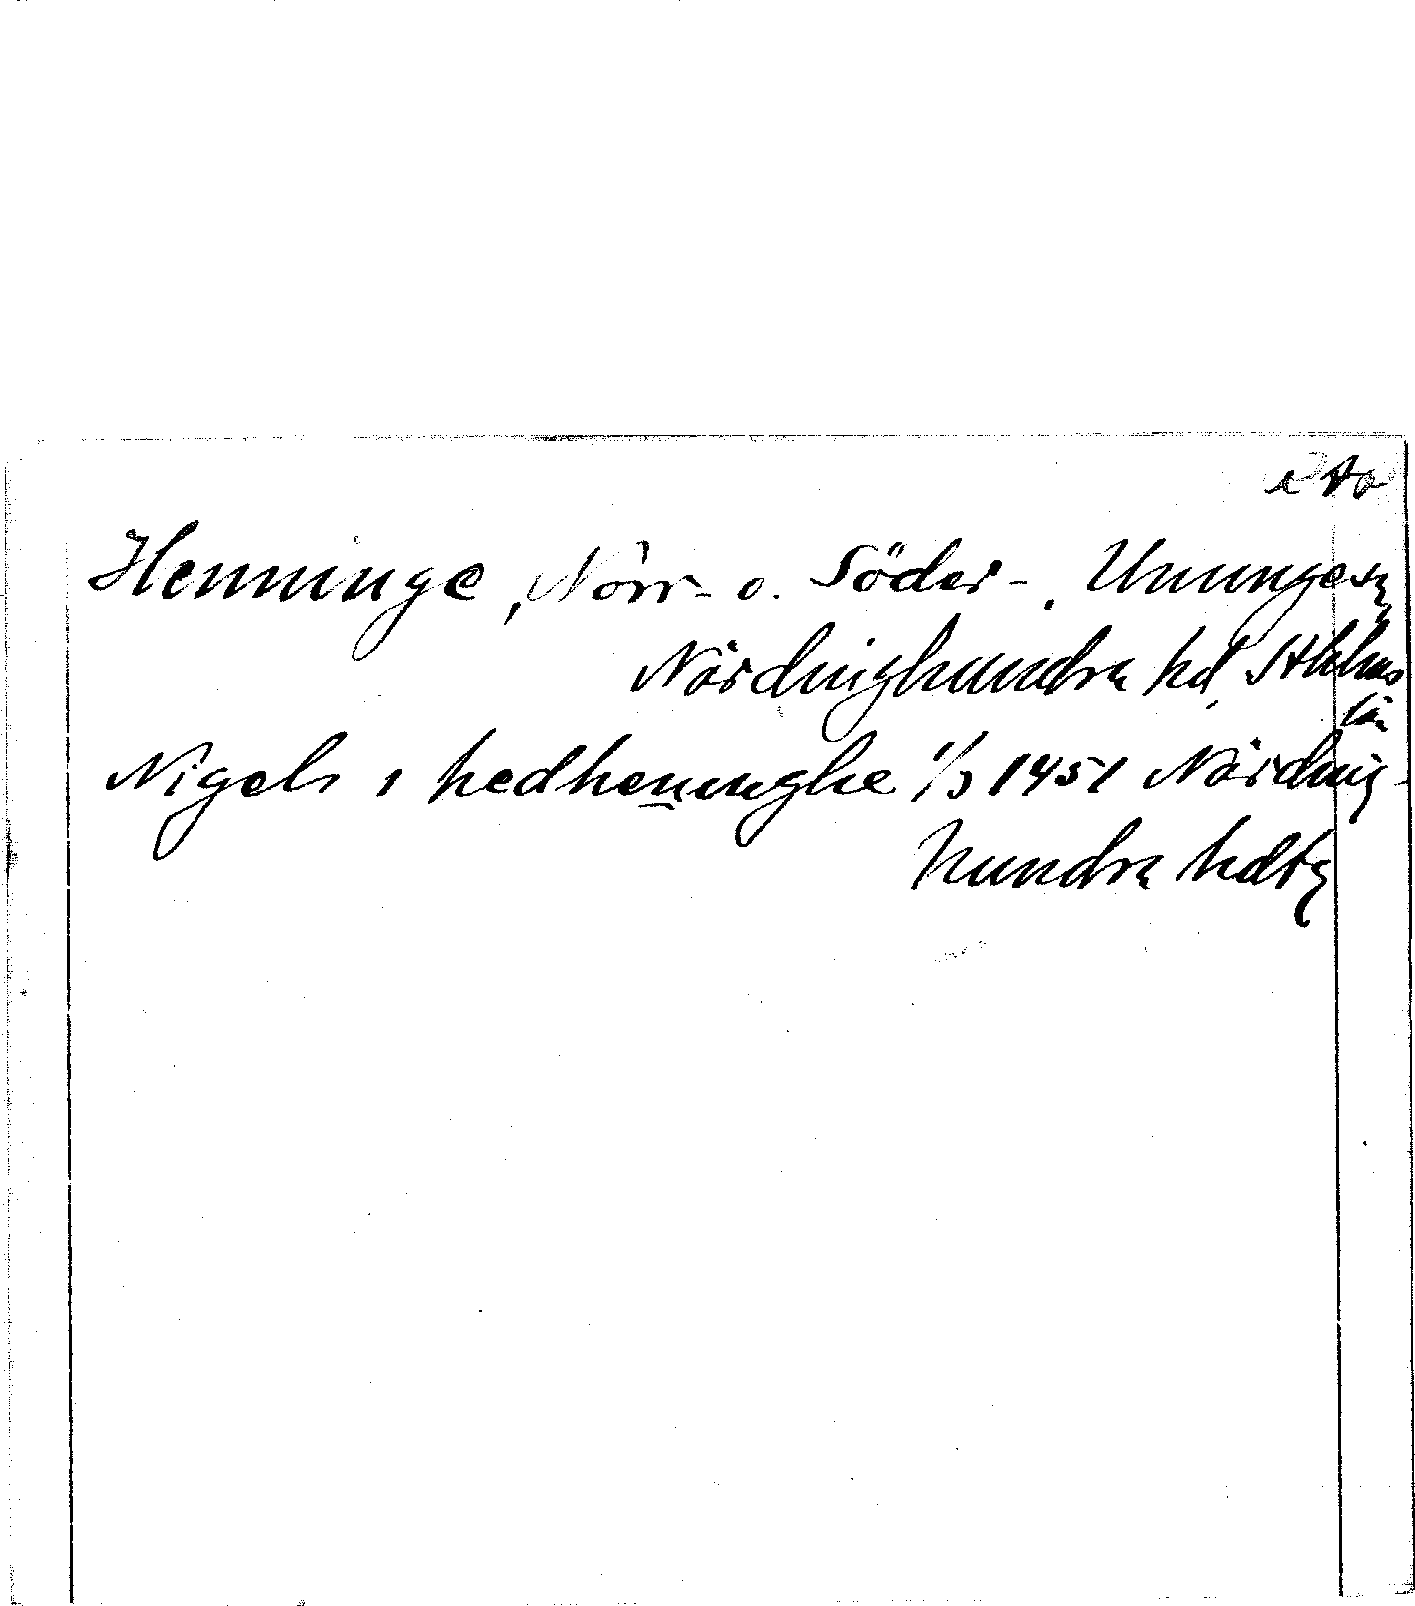 Henninge, Norr- o. Söder-, Ununge sn
Närdinghundra hd, Sthlms
län
Nigels i hedhenunghe 1/3 1451 Närding-
hundra hdtg